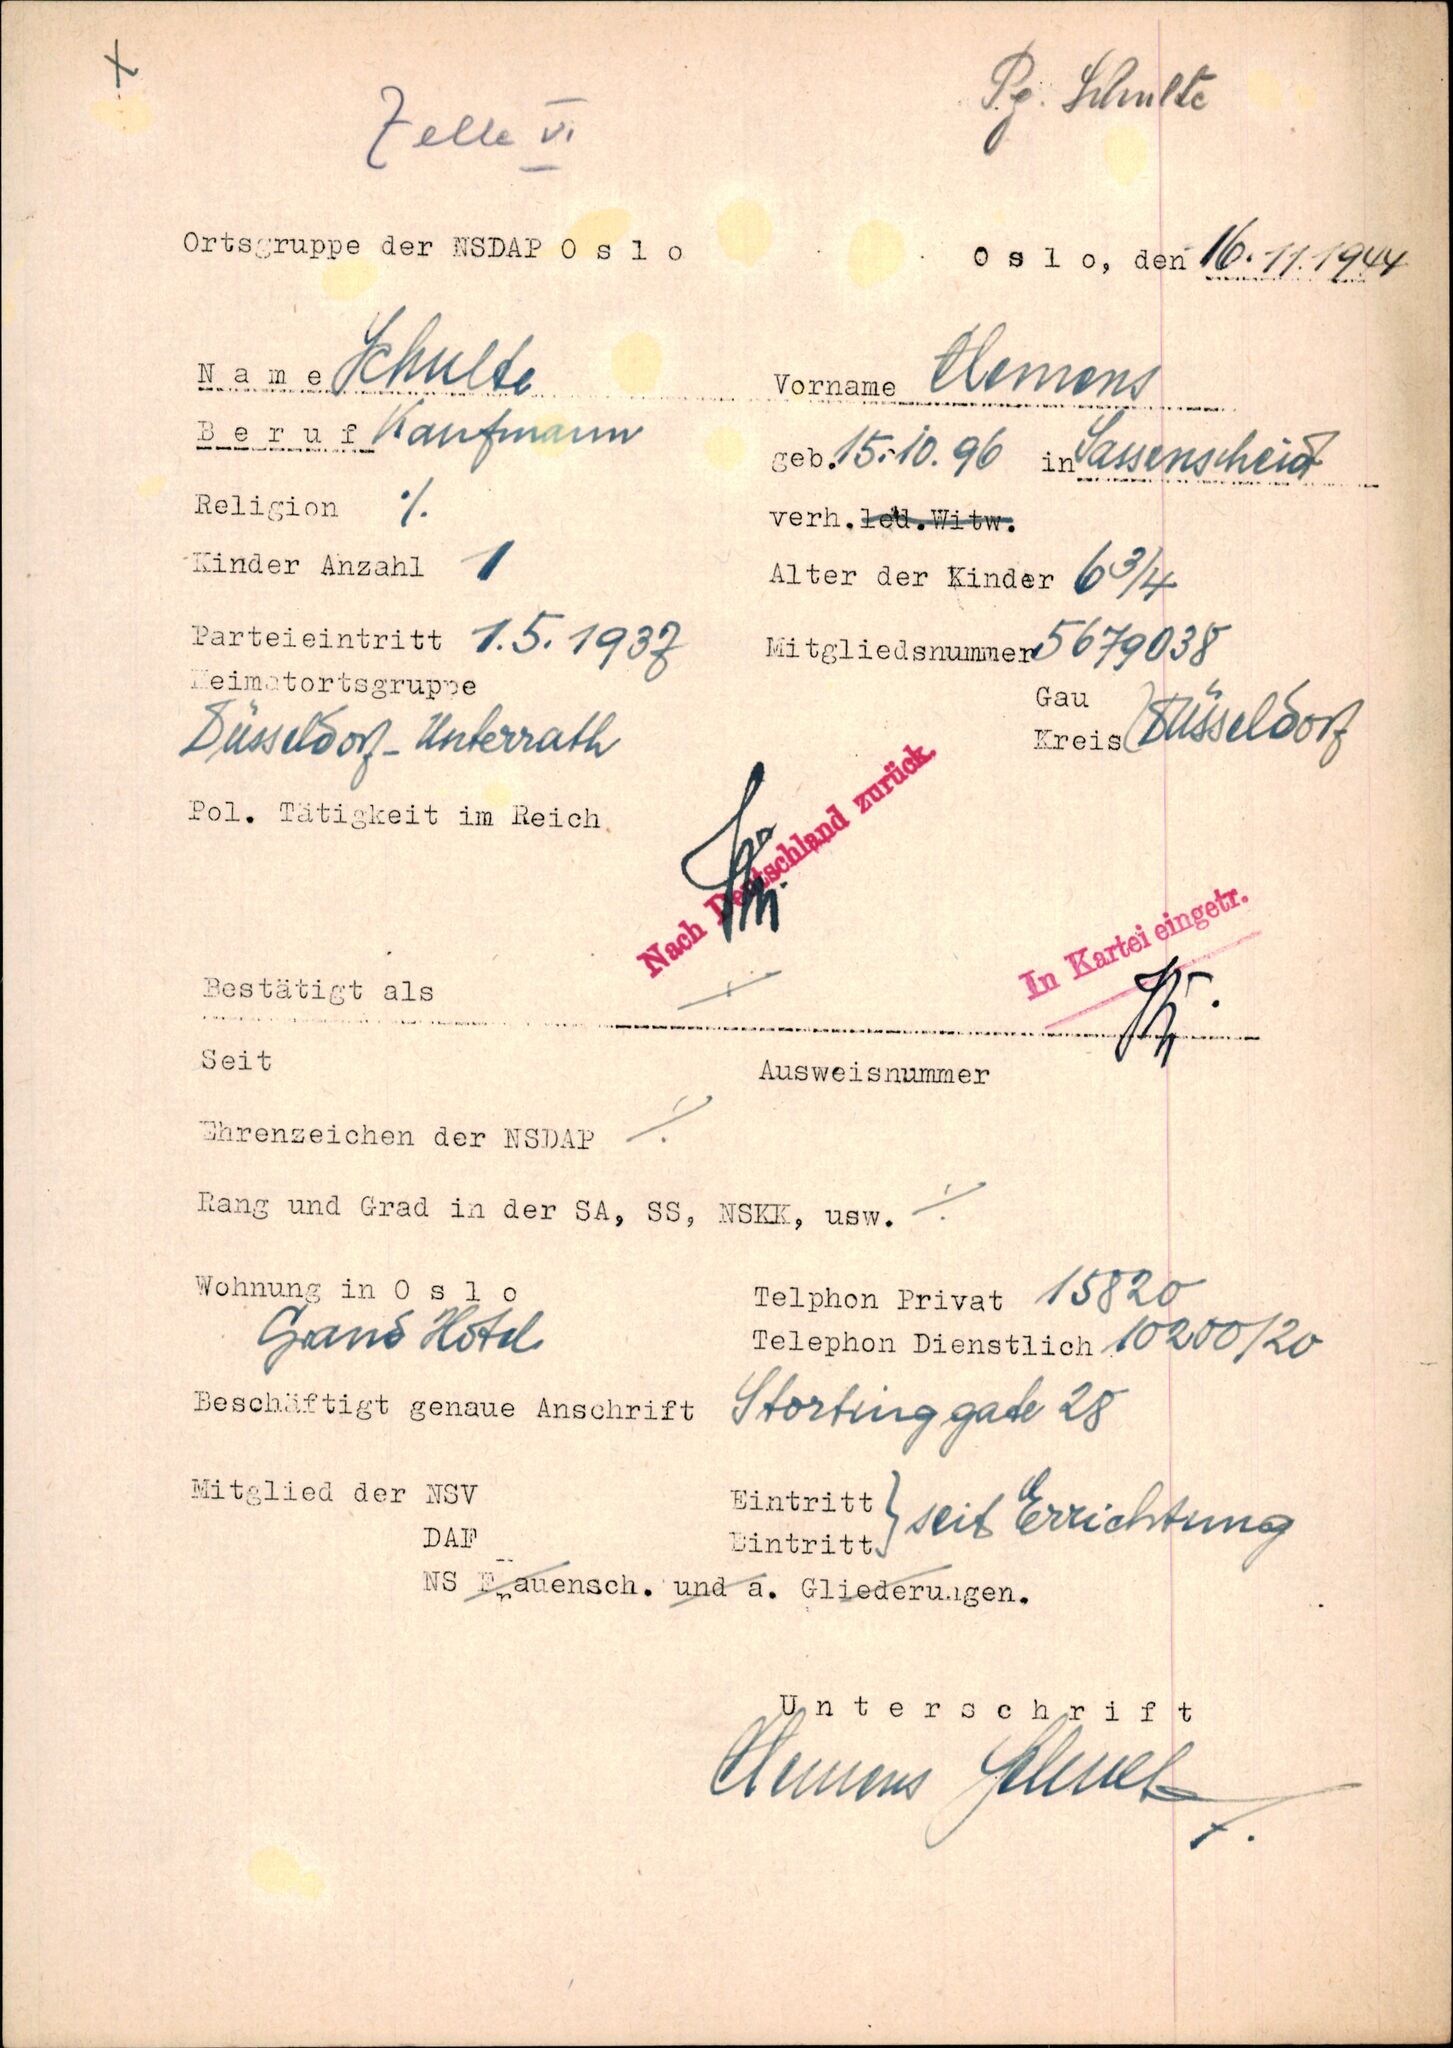 Pg. Schulte
Zelle VI
Ortsgruppe der NSDAP O s l o
O s l o, den 16.11.1944
N a m e Schulte
Vorname Clemens
B e r u f Kaufmann
geb. 15.10.96 in Sassenscheid
Religion ·/.
verh. led. Witw.
Kinder Anzahl 1
Alter der Kinder 6 3/4
Parteieintritt 1.5.1937
Mitgliedsnummer 5679038
Heimatortsgruppe
Gau
Düsseldorf-Unterrath
Kreis Düsseldorf
Pol. Tätigkeit im Reich
Nach Deutschland zurück.
In Kartei eingetr.
Bestätigt als
Seit
Ausweisnummer
Ehrenzeichen der NSDAP ·/.
Rang und Grad in der SA, SS, NSKK, usw. ·/.
Wohnung in O s l o
Telphon Privat 15820
Grand Hotel
Telephon Dienstlich 10200/20
Beschäftigt genaue Anschrift Stortinggade 28
Mitglied der NSV Eintritt } seit Errichtung
DAF Eintritt
NS Frauensch. und a. Gliederungen.
U n t e r s c h r i f t
Clemens Schulte